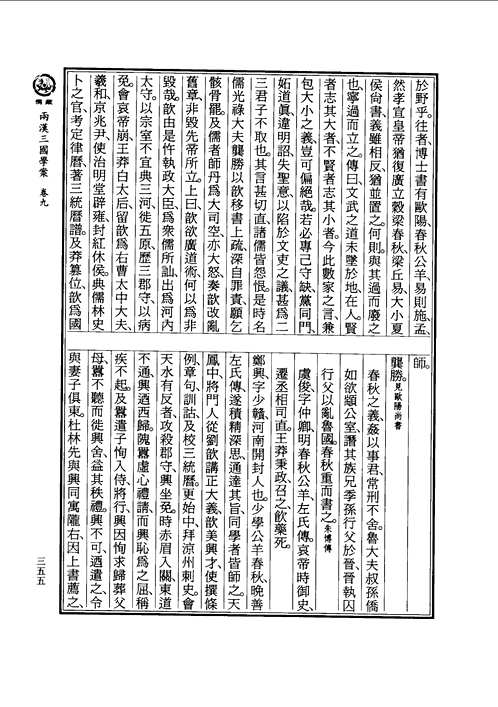 於野乎。往者、博士書有歐陽、春秋公羊、易則施、孟、
然孝宣皇帝猶復廣立穀梁春秋、梁丘易、大小夏
侯尚書、義雖相反、猶並置之。何則、與其過而廢之
也、寧過而立之。傳曰、文武之道未墜於地、在人。賢
者志其大者、不賢者志其小者。今此數家之言、兼
包大小之義、豈可偏絕哉。若必專己守缺、黨同門、
妬道眞、違明詔、失聖意、以陷於文吏之議、甚爲二
三君子不取也。其言甚切直、諸儒皆怨恨。是時名
儒光祿大夫龔勝以歆移書上疏深自罪責、願乞
骸骨罷。及儒者師丹爲大司空、亦大怒、奏歆改亂
舊章、非毀先帝所立。上曰、歆欲廣道術、何以爲非
毀哉。歆由是忤執政大臣、爲衆儒所訕、出爲河內
太守。以宗室不宜典三河、徙五原、歷三郡守。以病
免。會哀帝崩、王莽白太后、留歆爲右曹太中大夫、
羲和、京兆尹、使治明堂辟雍、封紅休侯、典儒林史
卜之官、考定律曆、著三統曆譜。及莽簒位、歆爲國
師。
龔勝。見歐陽尚書
春秋之義、姦以事君、常刑不舍。魯大夫叔孫僑
如欲顓公室、譖其族兄季孫行父於晉、晉執囚
行父以亂魯國、春秋重而書之。朱博傳
虞俊字仲卿、明春秋公羊、左氏傳。哀帝時御史、
遷丞相司直。王莽秉政、召之、飮藥死。
鄭興字少贛、河南開封人也。少學公羊春秋、晚善
左氏傳、遂積精深思、通達其旨、同學者皆師之。天
鳳中將門人從劉歆講正大義、歆美興才、使撰條
例、章句、訓詁、及校三統曆。更始中拜涼州刺史。會
天水有反者攻殺郡守、興坐免。時赤眉入關、東道
不通、興迺西歸。隗囂虛心禮請、而興恥爲之屈、稱
疾不起。及囂遣子恂入侍、將行、興因恂求歸葬父
母、囂不聽而徙興舍、益其秩禮。興不可、迺遣之、令
與妻子俱東。杜林先與興同寓隴右、因上書薦之、
儒藏
兩漢三國學案 卷九
三五五